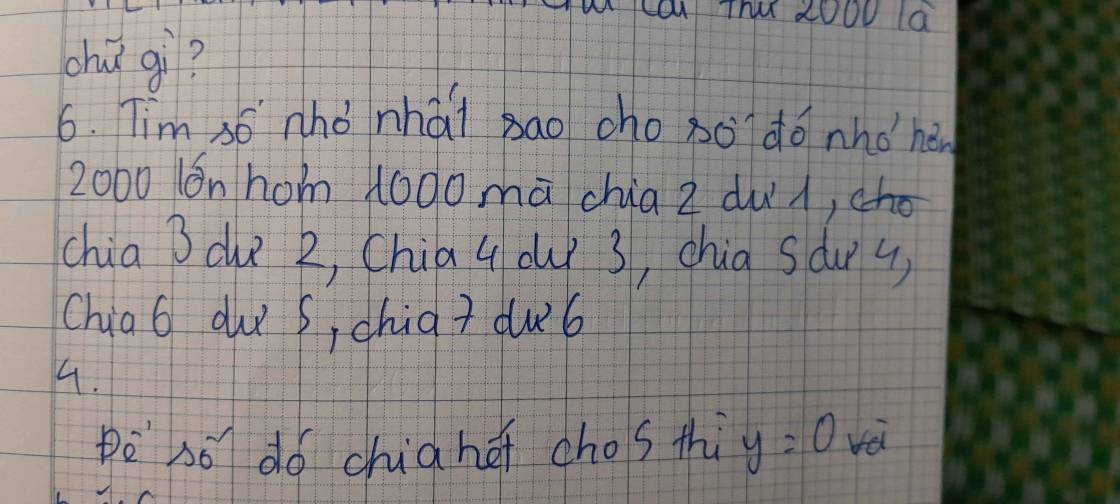 cái thứ 2000 là
chữ gì?
6. Tìm số nhỏ nhất sao cho số đó nhỏ hơn
2000 lớn hơn 1000 mà chia 2 dư 1, cho
chia 3 dư 2, Chia 4 dư 3, chia 5 dư 4,
Chia 6 dư 5, chia 7 dư 6
4.
Để số đó chia hết cho 5 thì y = 0 và